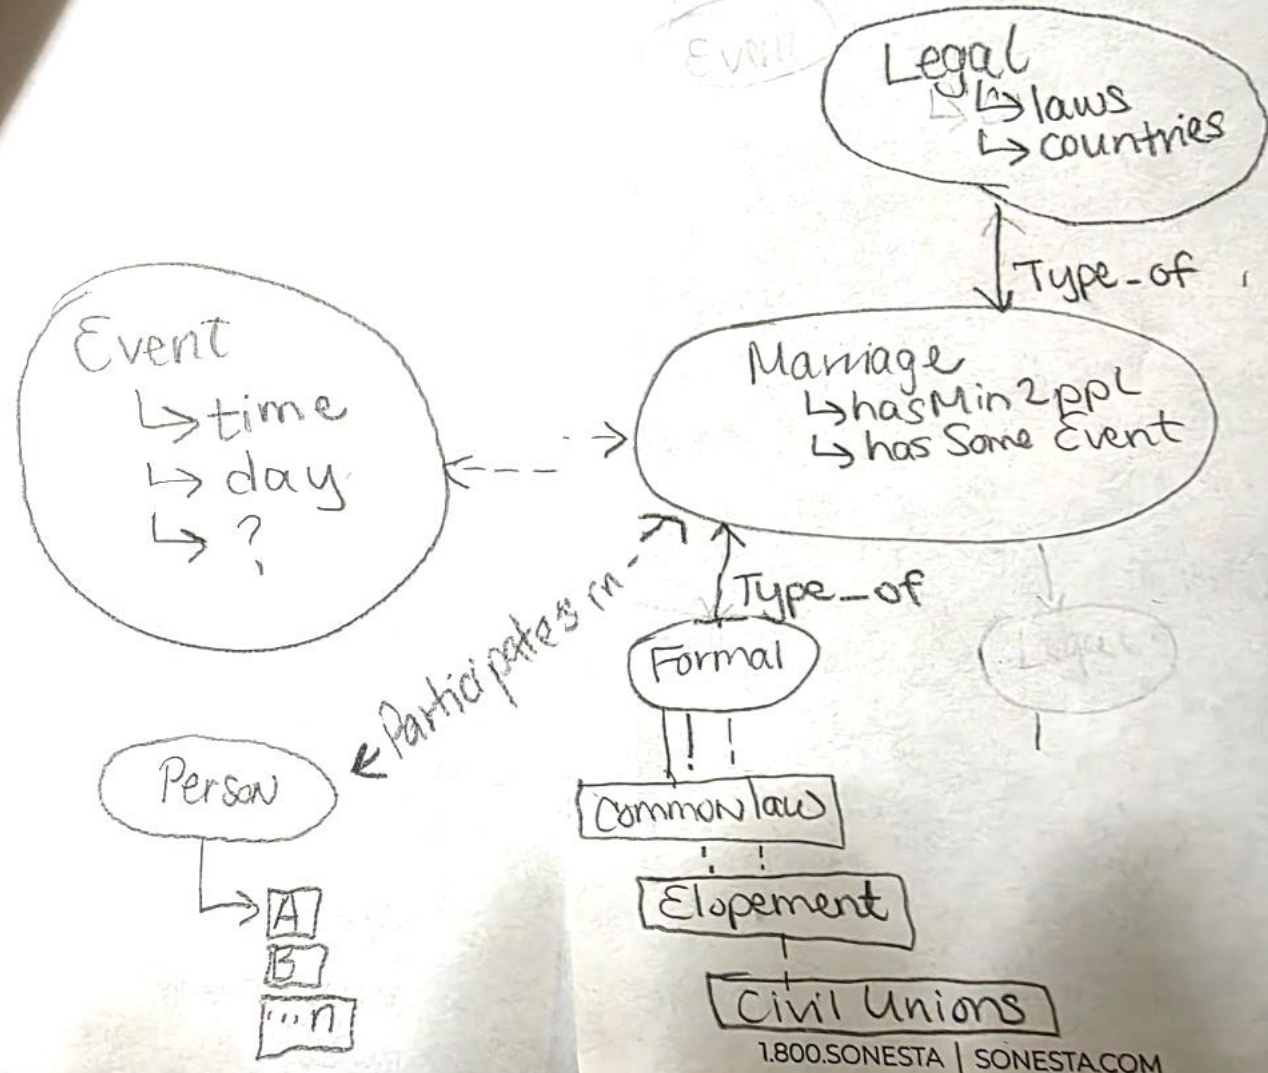 Legal
laws
countries
Type_of
Event
time
day
?
Marriage
hasMin2ppl
has Some Event
Participates in
Type_of
Formal
Legal
Person
A
B
...n
Common law
Elopement
Civil Unions
1.800.SONESTA | SONESTA.COM